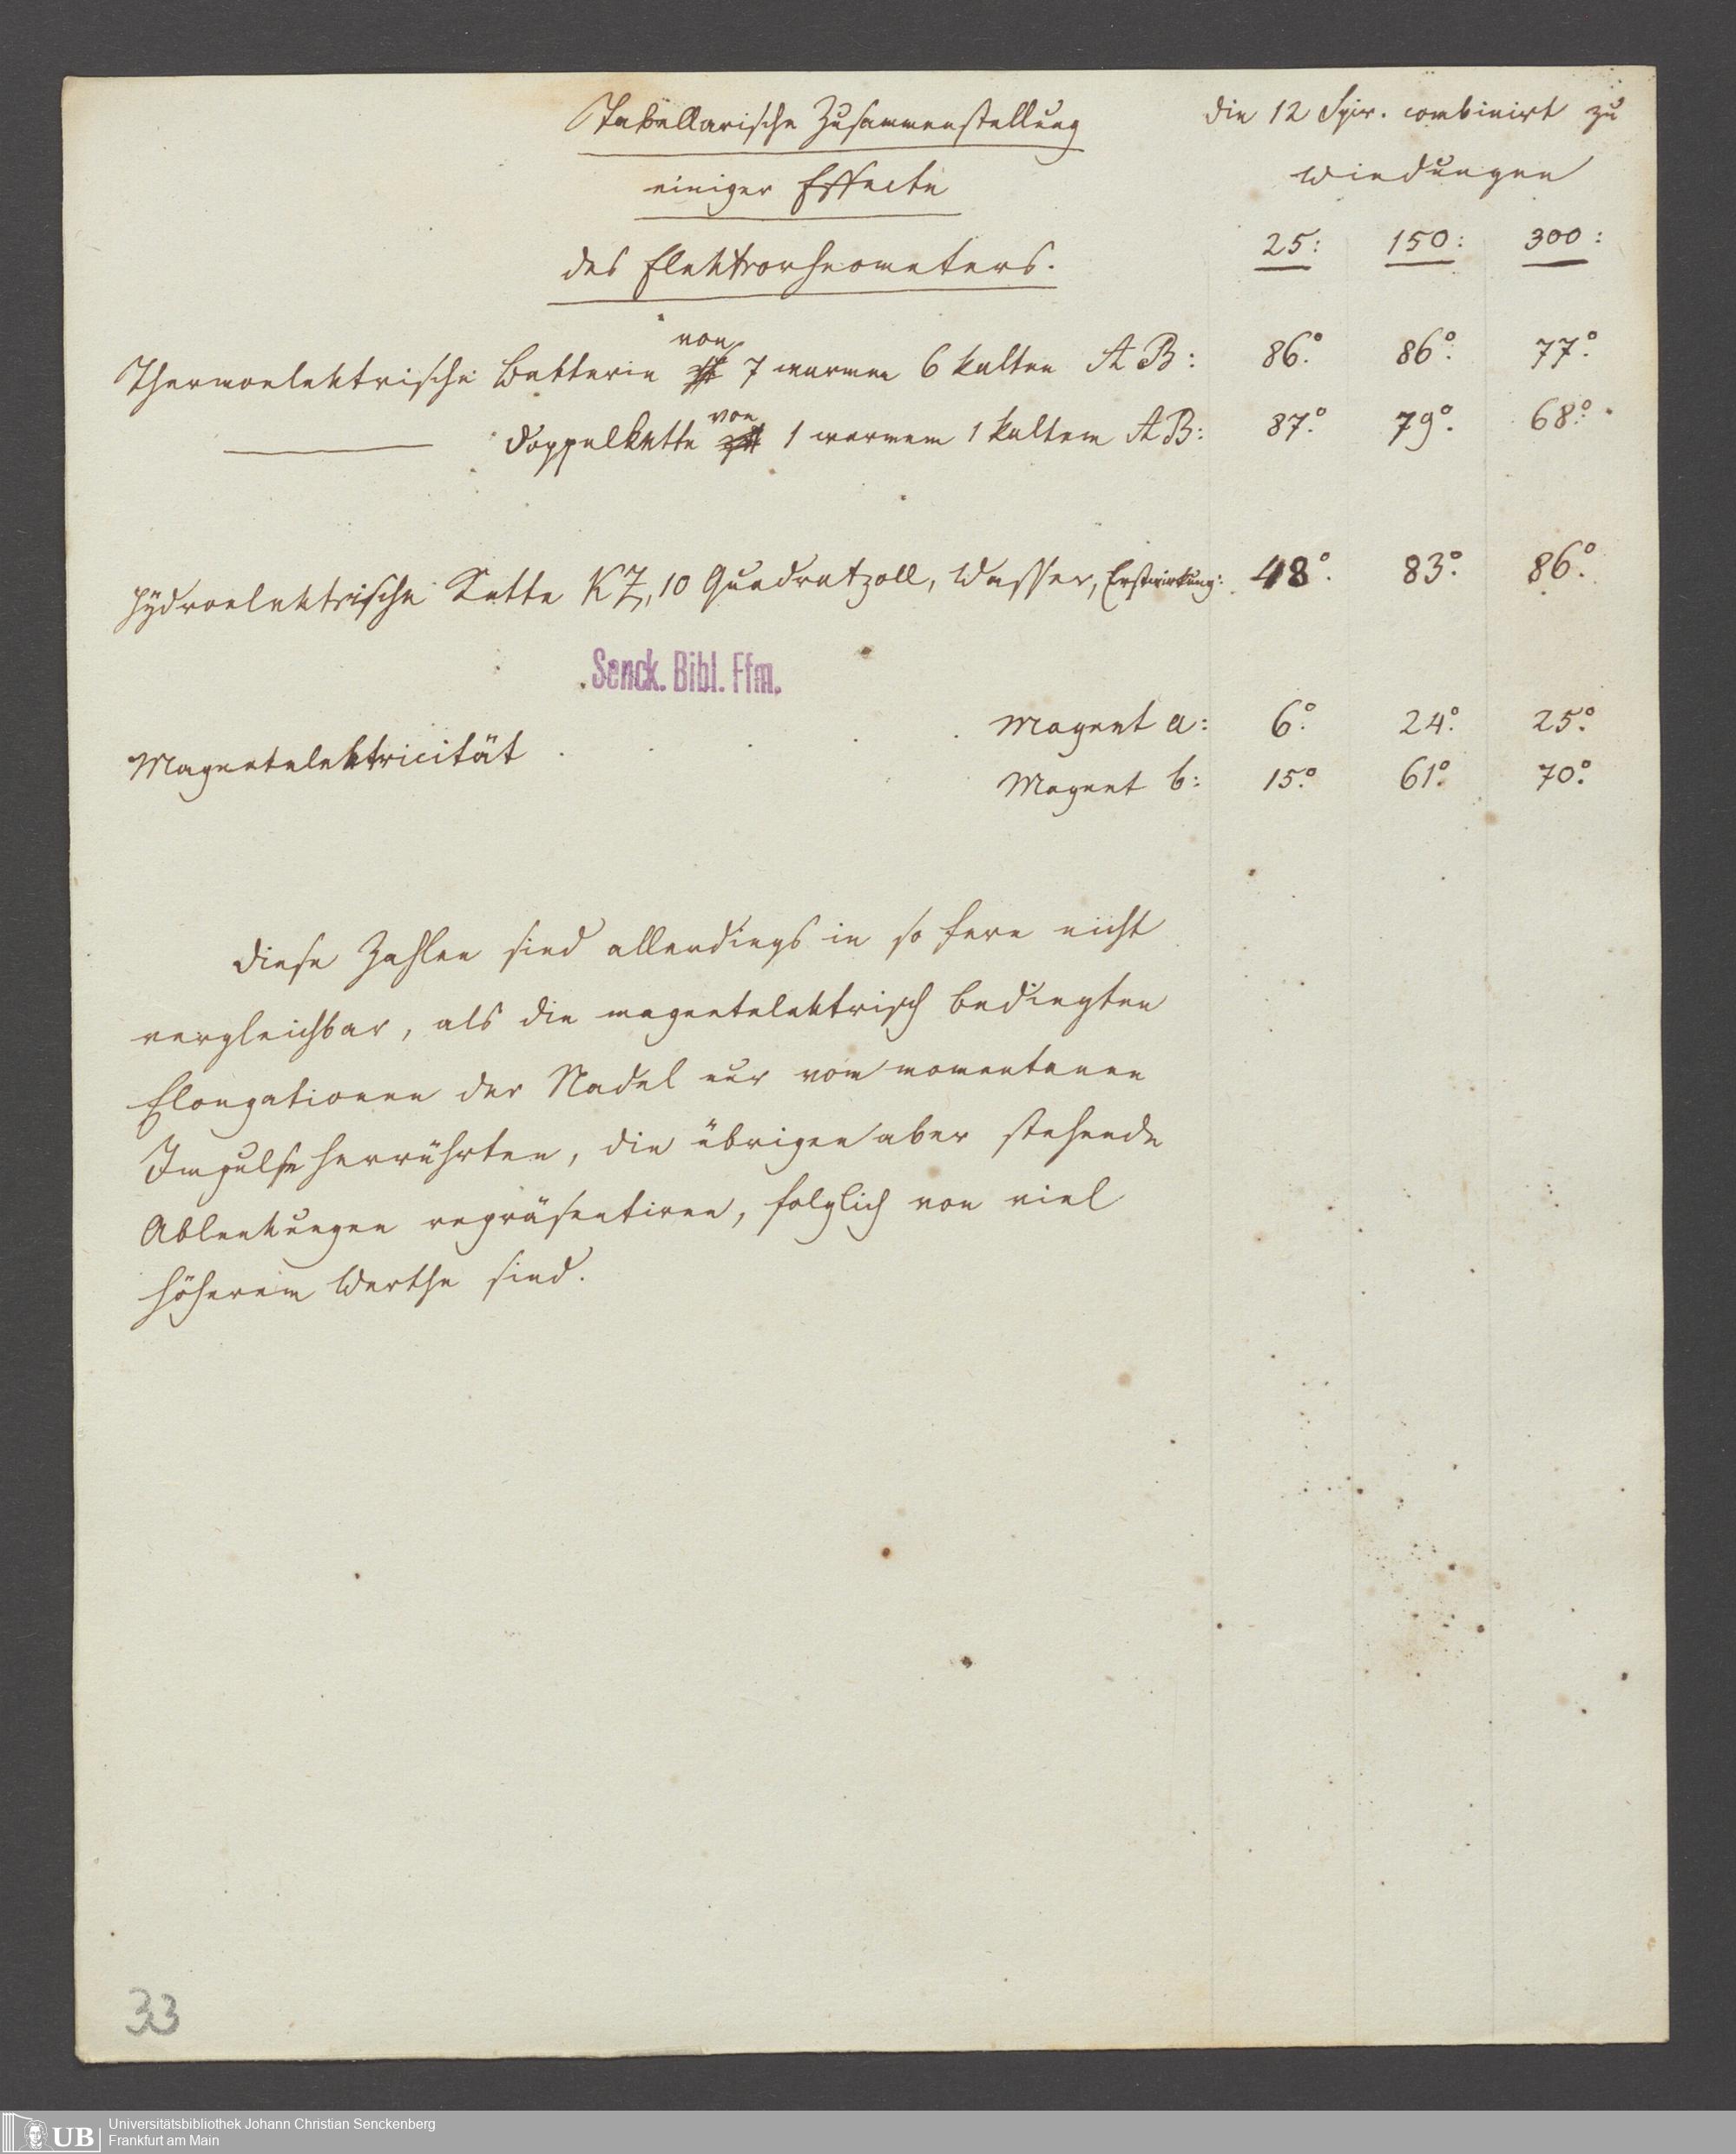 Tabellarische Zusammenstellung
einiger Effecte
des Elektrorheometers.
Die 12 Spir. combinirt zu
Windungen
25: 150: 300:
von
Thermoelektrische Batterie 7 warmen 6 kalten AB: 86°. 86°. 77°.
von
Doppelkette 1 warmem 1 kaltem AB: 87°. 79°. 68°.
Hydroelektrische Kette KZ, 10 Quadratzoll, Wasser, Erstwirkung: 48°. 83°. 86°.
Senck. Bibl. Ffm.
Magnetelektricität . . . . . Magnet a: 6°. 24°. 25°.
Magnet b: 15°. 61°. 70°.
Diese Zahlen sind allerdings in so fern nicht
vergleichbar, als die magnetelektrisch bedingten
Elongationen der Nadel nur vom momentanen
Impulse herrührten, die übrigen aber stehende
Ablenkungen repräsentiren, folglich von viel
höherem Werthe sind.
33
UB
Universitätsbibliothek Johann Christian Senckenberg
Frankfurt am Main